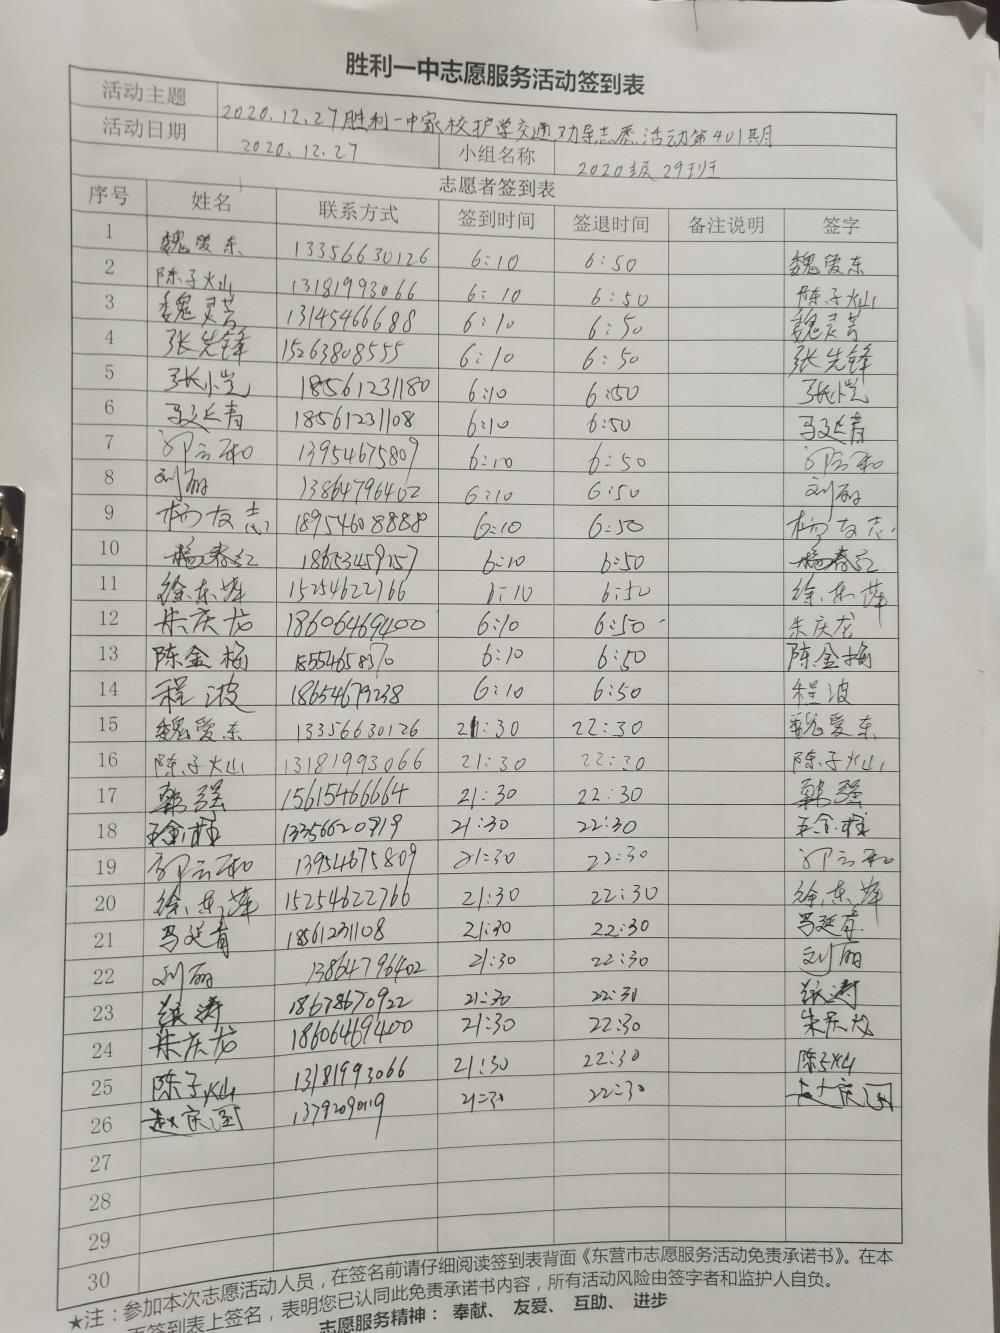 胜利一中志愿服务活动签到表
活动主题 2020.12.27胜利一中家校护学交通劝导志愿活动第401期
活动日期 2020.12.27 小组名称 2020级29班
志愿者签到表
序号 姓名 联系方式 签到时间 签退时间 备注说明 签字
1 魏爱东 13356630126 6:10 6:50 魏爱东
2 陈子火山 13181993066 6:10 6:50 陈子火山
3 魏灵芳 13145466688 6:10 6:50 魏灵芳
4 张先锋 15263808555 6:10 6:50 张先锋
5 张小岂 18561231180 6:10 6:50 张小岂
6 马延青 18561231108 6:10 6:50 马延青
7 邓云和 13954675809 6:10 6:50 邓云和
8 刘丽 13864796402 6:10 6:50 刘丽
9 杨友志 18954608888 6:10 6:50 杨友志
10 杨春红 18653459257 6:10 6:50 杨春红
11 徐东萍 15254622766 6:10 6:50 徐东萍
12 朱庆龙 18606469400 6:10 6:50 朱庆龙
13 陈金梅 18554658370 6:10 6:50 陈金梅
14 程波 18654679238 6:10 6:50 程波
15 魏爱东 13356630126 21:30 22:30 魏爱东
16 陈子火山 13181993066 21:30 22:30 陈子火山
17 韩强 15615466664 21:30 22:30 韩强
18 13356620919 21:30 22:30
19 邓云和 13954675809 21:30 22:30 邓云和
20 徐东萍 15254622766 21:30 22:30 徐东萍
21 马延青 18561231108 21:30 22:30 马延青
22 刘丽 13864796402 21:30 22:30 刘丽
23 18678670922 21:30 22:30
24 朱庆龙 18606469400 21:30 22:30 朱庆龙
25 陈子火山 13181993066 21:30 22:30 陈子火山
26 赵庆国 13792090119 21:30 22:30 赵庆国
27
28
29
30
★注：参加本次志愿活动人员，在签名前请仔细阅读签到表背面《东营市志愿服务活动免责承诺书》。在本
页签到表上签名，表明您已认同此免责承诺书内容，所有活动风险由签字者和监护人自负。
志愿服务精神： 奉献、 友爱、 互助、 进步